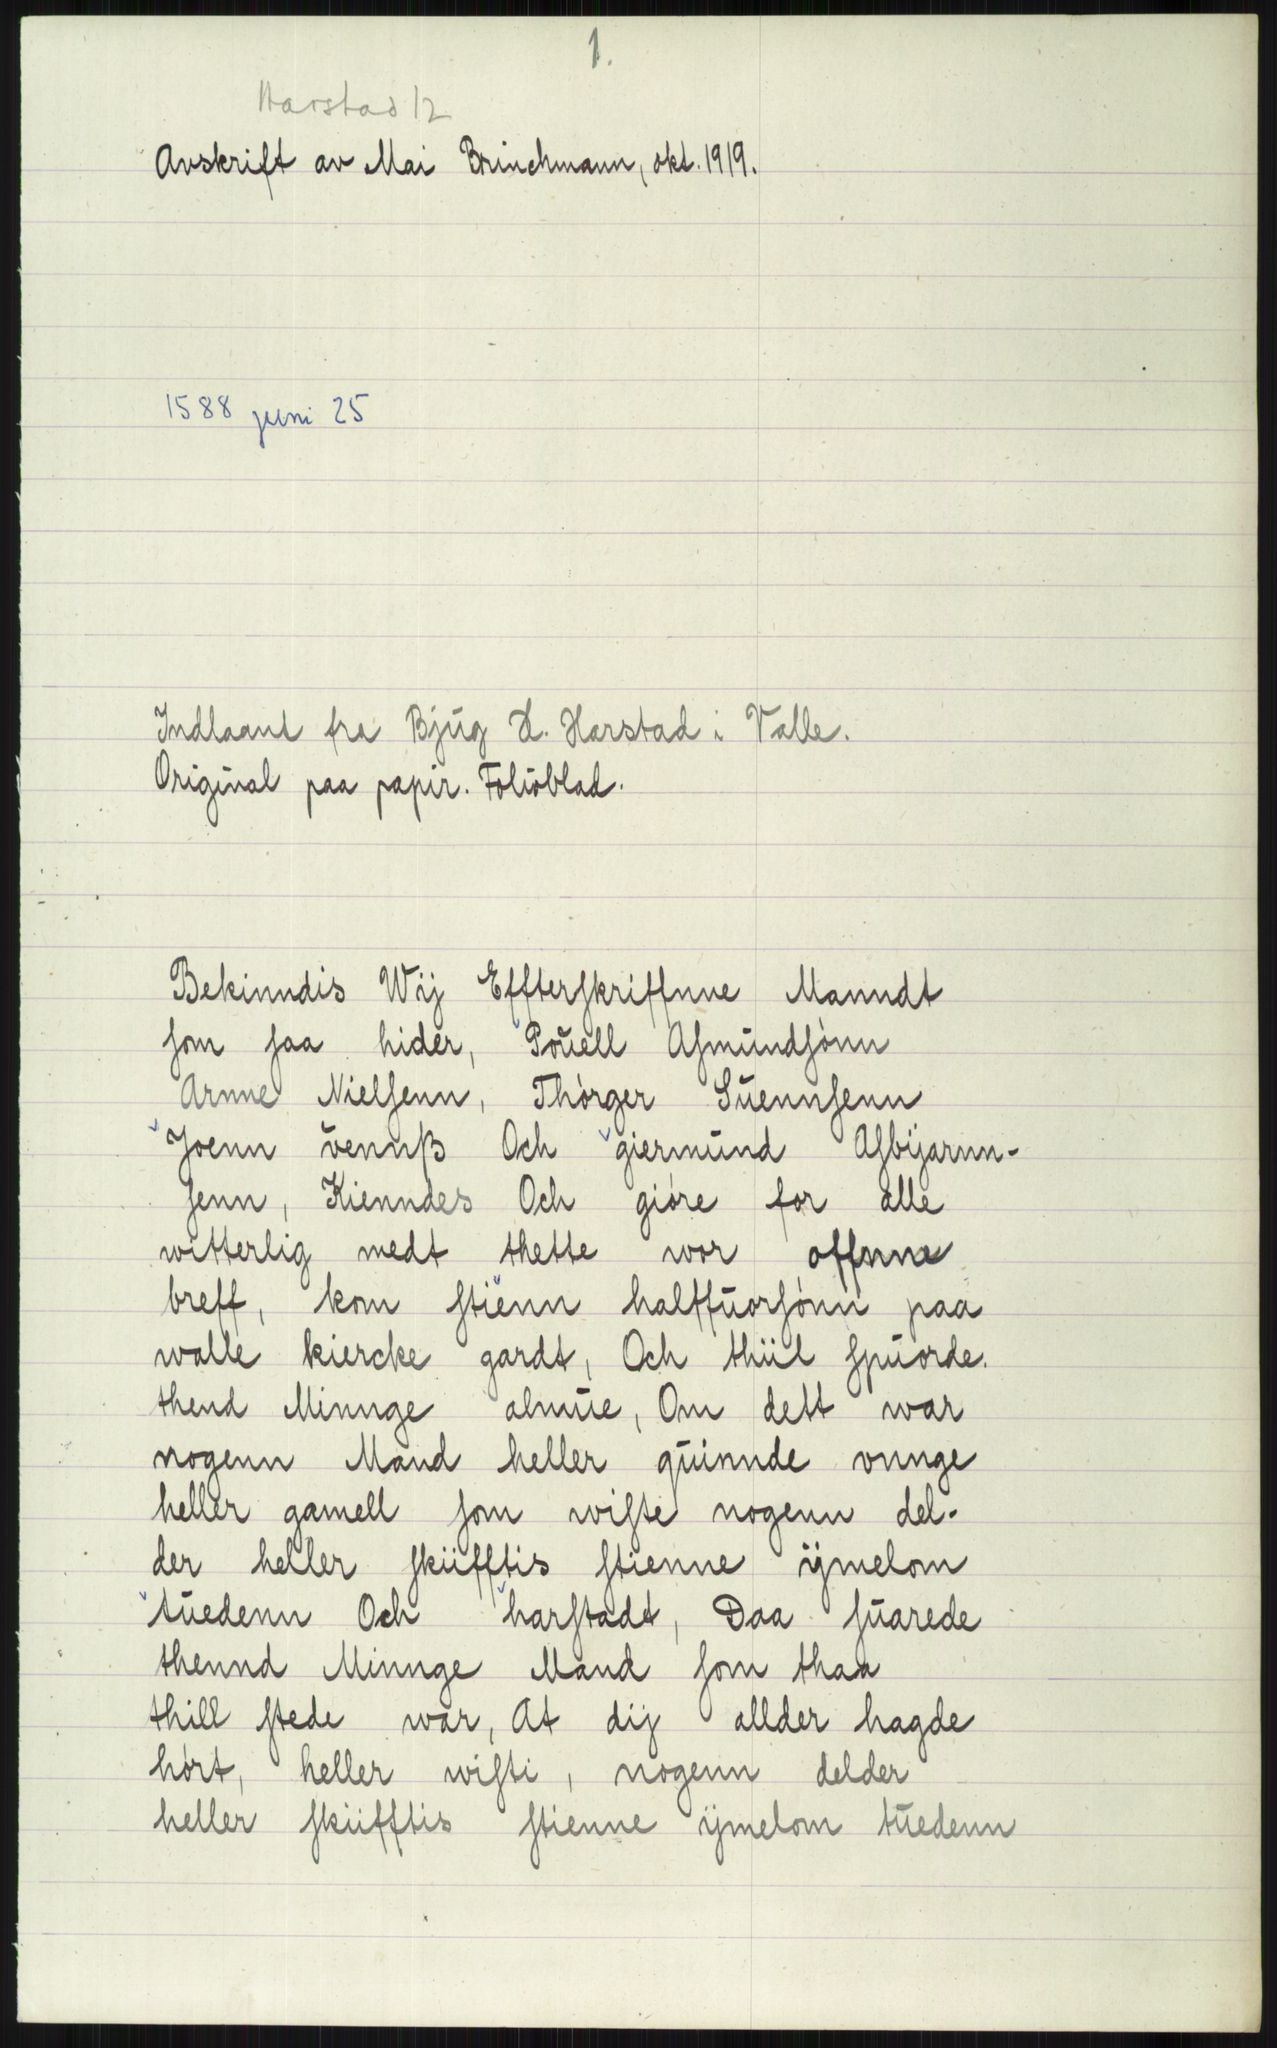 1.
Harstad 12
Avskrift av Mai Brinchmann, okt. 1919.
1588 juni 25
Indlaant fra Bjug H. Harstad i Valle.
Original paa papir. Folioblad.
Bekinndis Wij Effterſkriffnne Manndt
ſom ſaa hider, Pouell Aſmundſónn
Arnne Nielſenn, Thórger Suennſenn
Joenn vennß Och giermund Aſbijarnn-
ſenn, Kienndes Och gióre for alle
witterlig medt thette wor offnne
breff, kom ſtienn halffuorſónn paa
walle kiercke gardt, Och thiil ſpuorde.
thend Minnge almue, Om dett war
nogenn Mand heller quinnde vnnge
heller gamell ſom wiſte nogenn del-
der heller ſkiifftis ſtienne ÿmelom
tuedenn Och harſtadt, Daa ſuarede
thennd Minnge Mand ſom thaa
thill ſtede war, At dij allder hagde
hórt, heller wiſti, nogenn delder
heller ſkiifftis ſtienne ÿmelom tuedenn